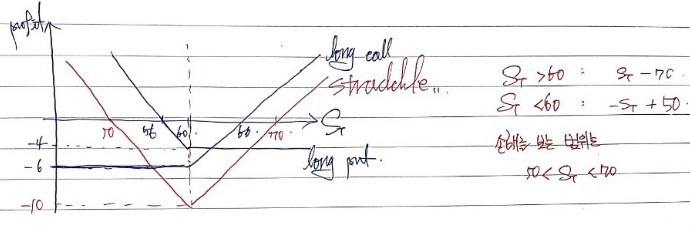 profit
long call
straddle..
ST
long put.
-4
-6
-10
50
56
60.
66.
70.
ST > 60 : ST - 70.
ST < 60 : -ST + 50.
손해를 보는 범위는
50 < ST < 70